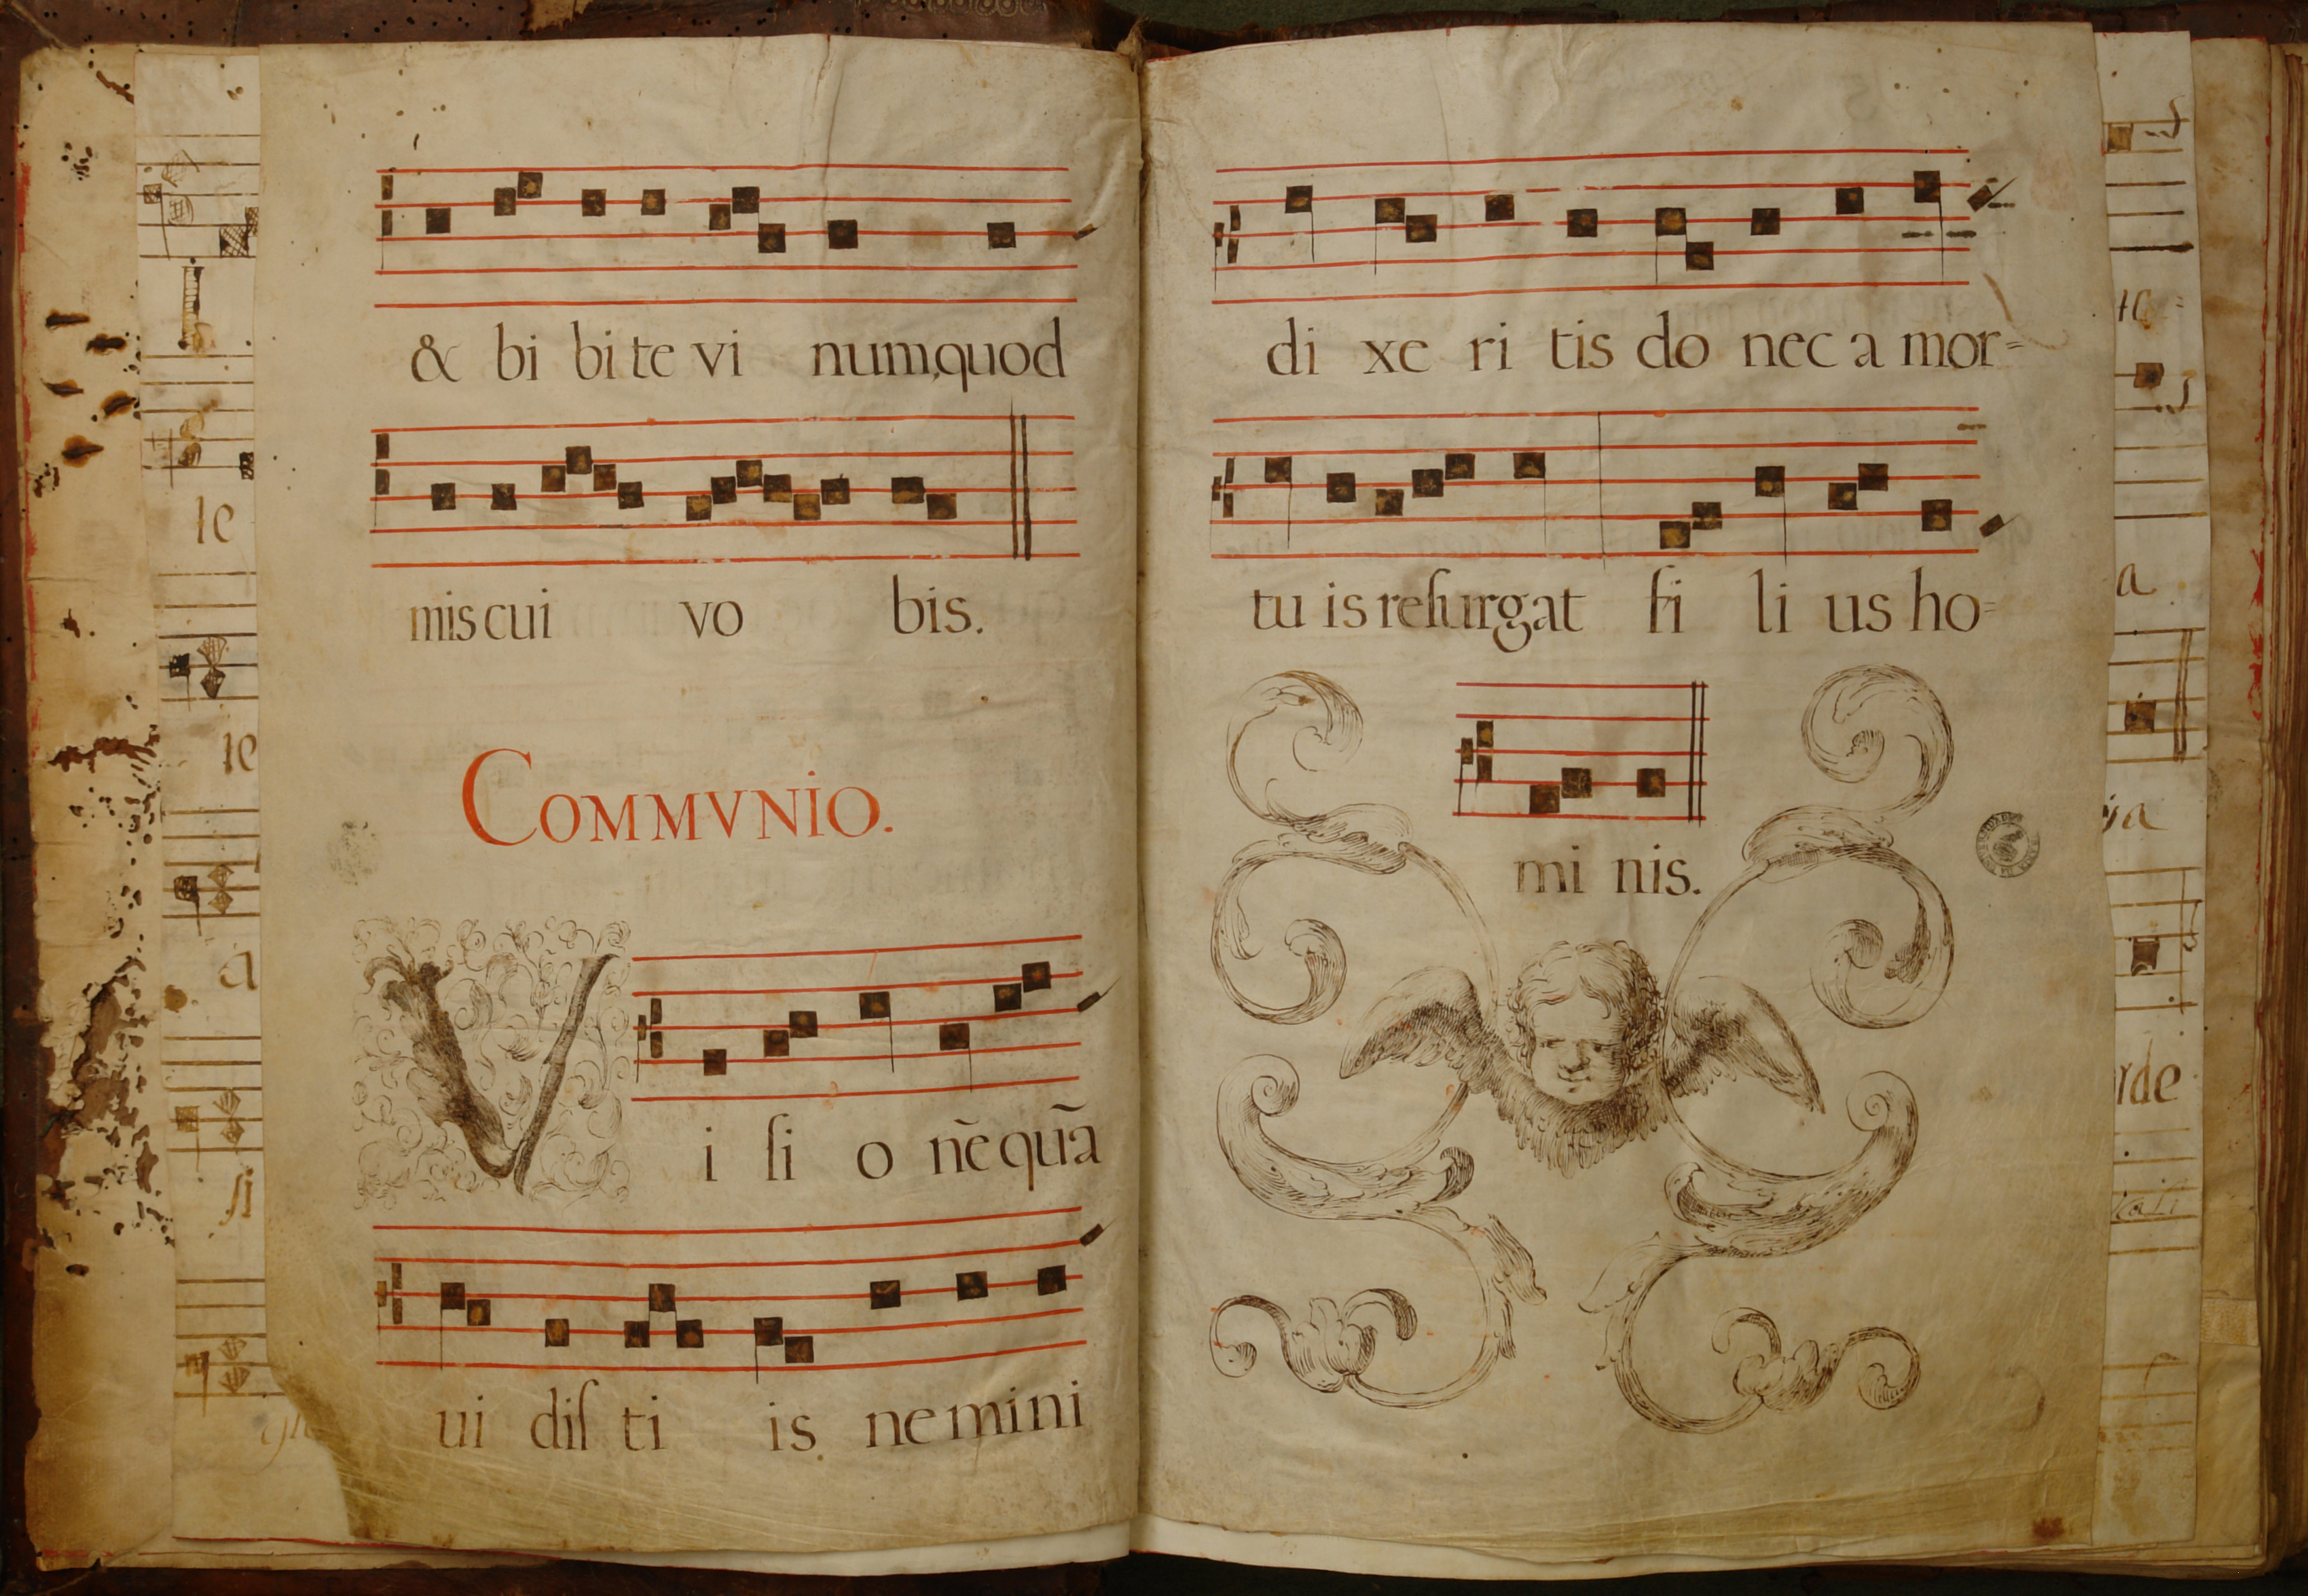 & bi bi te vi num,quod
mis cui vo bis.
COMMVNIO.
Vi ſi o nẽ quã
ui diſ ti is nemini
di xe ri tis do nec a mor=
tu is reſurgat fi li us ho=
mi nis.
le
le
a
ſi
a
rde